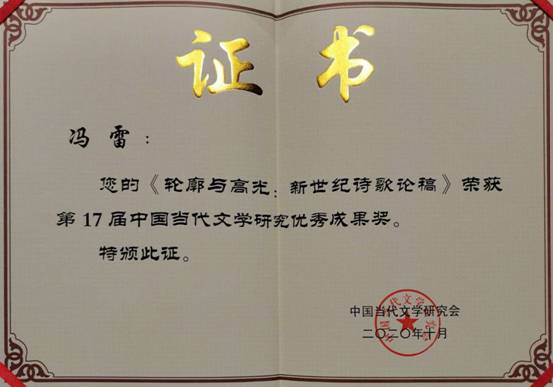 证书
冯雷：
您的《轮廓与高光：新世纪诗歌论稿》荣获
第17届中国当代文学研究优秀成果奖。
特颁此证。
中国当代文学研究会
二〇二〇年十月